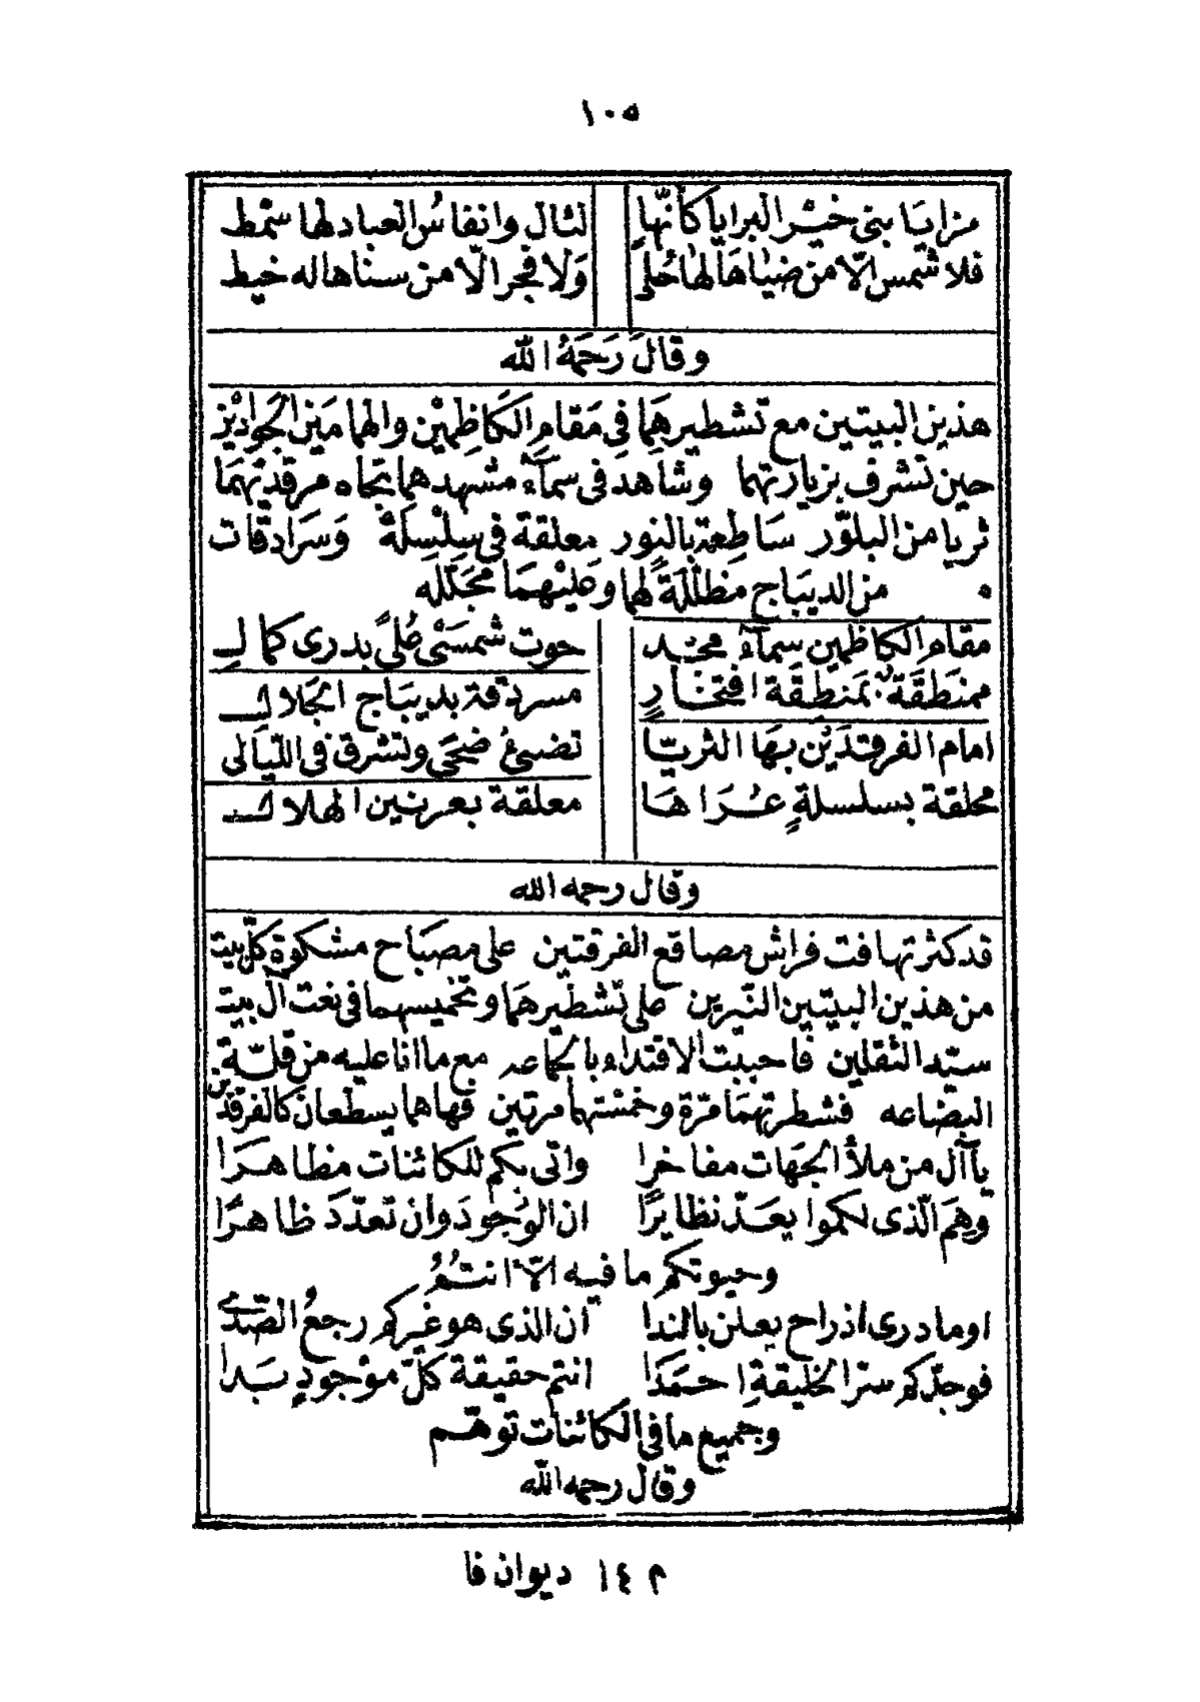 ١٠٥
مزايا بنى خيْر البرايا كأنّها لئال وانفاسُ العباد لها سمْط
فلا شمس الّا من ضياهَا لهَا حُلى وَلا فجر الّا من سناها له خيط
وقالَ رَحمَهُ الله
هذين البيتين مع تشطيرهمَا فِي مَقامِ الكَاظِميْن والهمامَين الجَوادَيْن
حين تشرف بزيارتهما وشاهد فى سمآء مشهدهما تجاه مرقدَيْهمَا
ثريا من البلوّر سَاطِعة بالنور معلقة فى سِلْسِلَةْ وَسرَادقات
ه من الديبَاج مظلّلَة لهما وعَليْهمَا مجَلّله
مقام الكاظمين سمآء مجْد حوت شمسَىْ عُلىً بدرى كمال
ممنطَقَة بمَنطقَة افتخَارٍ مسردقة بديبَاج الجَلال
امام الفرقدَيْن بهَا الثريّا تضيئُ ضحَى وتشرق فى اللّيَالى
محلقة بسلسلةٍ عُرَاهَا معلقة بعرنين الهلال
وقال رحمه الله
قد كثر تهافت فراش مصاقع الفرقتين على مصبَاح مشكوة كلّ بيت
من هذين البيتين النّيرين على تشطيرهمَا وتخميسهما فى نعت آل بيت
سيّد الثقلين فاحببت الاقتداء بالجماعه مع ما انا عليه من قلّة
البضاعه فشطرتهمَا مرّة وخمستهما مرتين فهاهما يسطعان كالفرقدين
يا آل من ملأ الجهَات مفاخرا واتى بكم للكائنات مظاهرَا
وهمَ الّذى لكموا يعَدّ نظايرًا ان الوُجُودَ وان تعدّدَ ظاهرًا
وحيوتكم ما فيه الّا انتُمُ
او ما درى اذ راح يعلن بالندا ان الذى هو غيركم رجعُ الصّدَى
فوجدّكم سرّ الخليقةِ احمَدَا انتم حقيقة كلّ موْجودٍ بَدا
وجميع ما فى الكائنات توهّم
وقال رحمه الله
م ١٤ ديوان فا